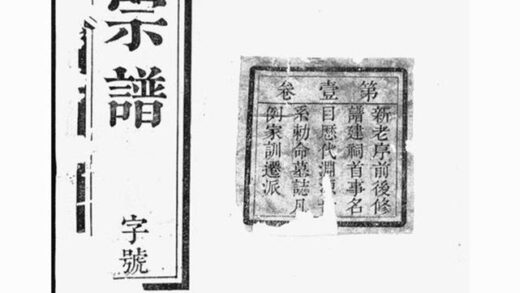 宗譜
字號
第壹卷
新老序前後修
譜建祠首事名
目歷代淵源
系勅命墓誌凡
例家訓遷派